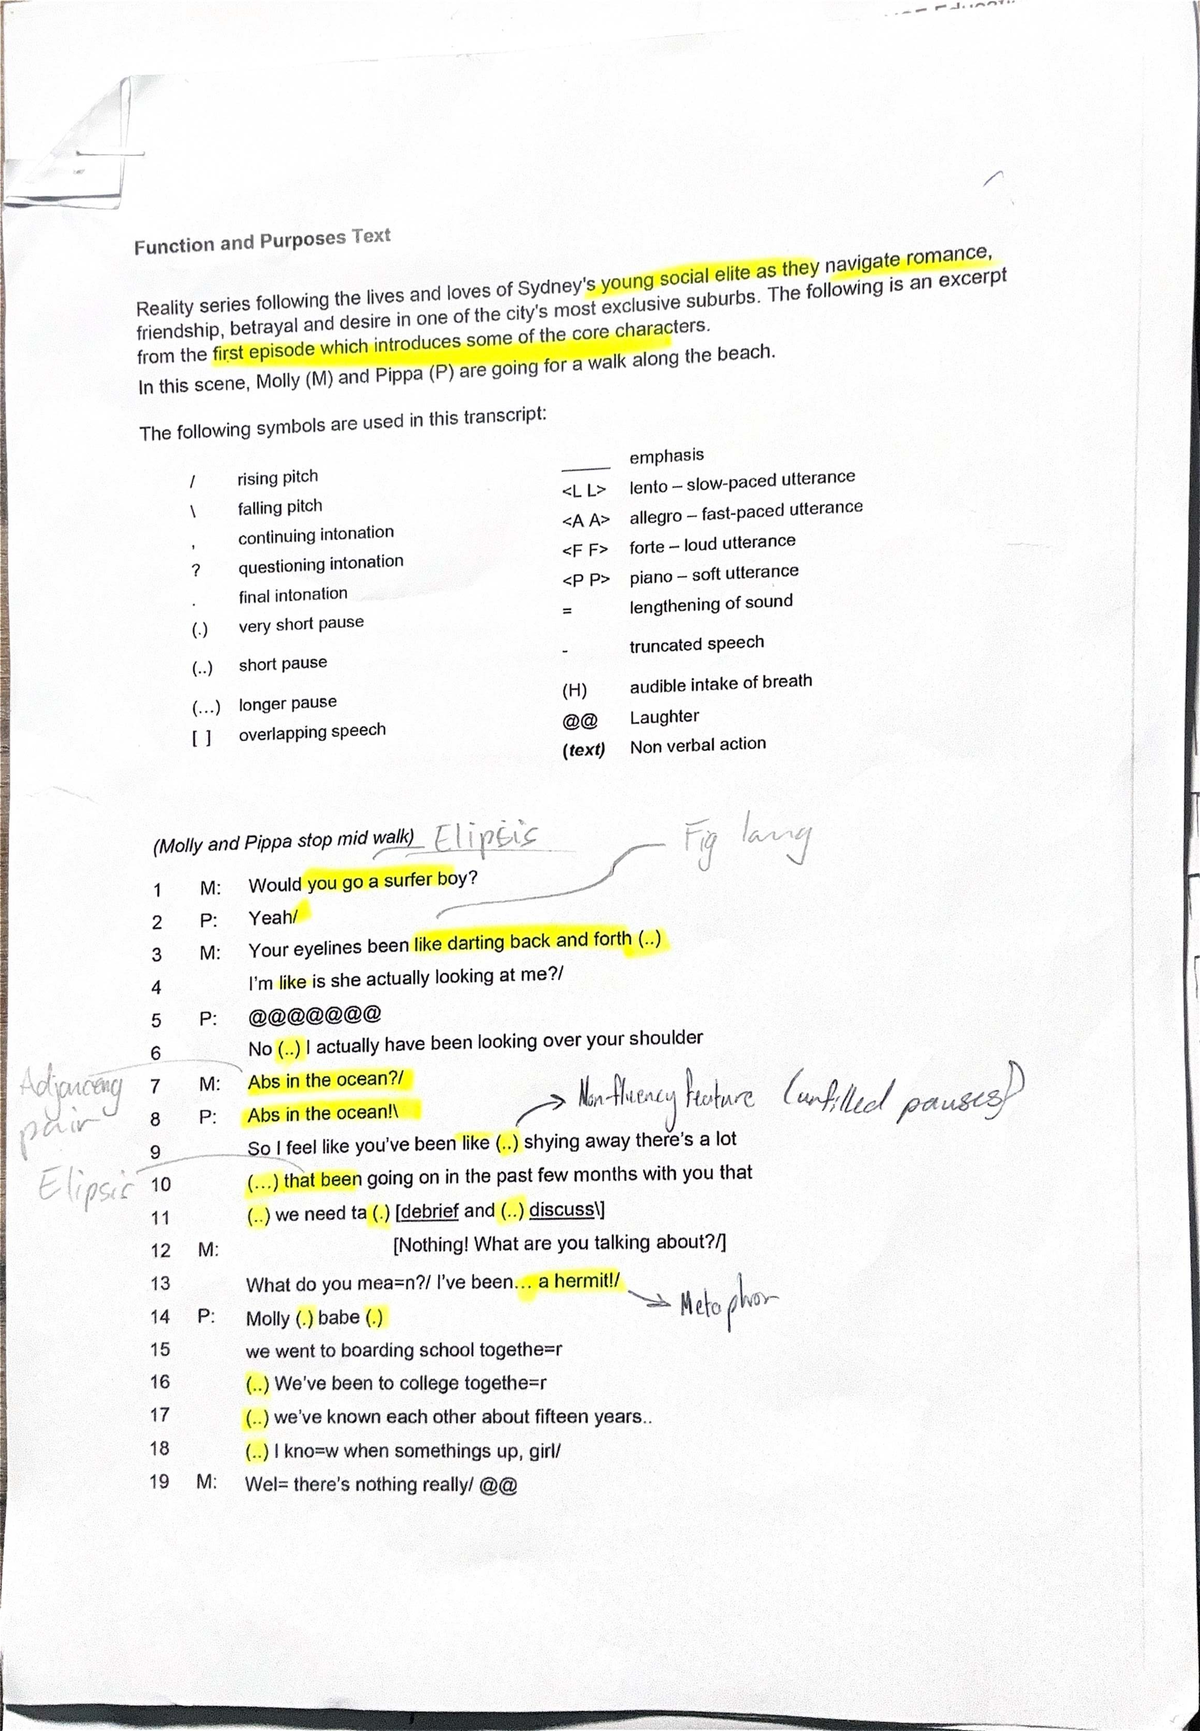 Function and Purposes Text
Reality series following the lives and loves of Sydney's young social elite as they navigate romance,
friendship, betrayal and desire in one of the city's most exclusive suburbs. The following is an excerpt
from the first episode which introduces some of the core characters.
In this scene, Molly (M) and Pippa (P) are going for a walk along the beach.
The following symbols are used in this transcript:
/ rising pitch
\ falling pitch
, continuing intonation
? questioning intonation
. final intonation
(.) very short pause
(..) short pause
(...) longer pause
[ ] overlapping speech
____ emphasis
<L L> lento – slow-paced utterance
<A A> allegro – fast-paced utterance
<F F> forte – loud utterance
<P P> piano – soft utterance
= lengthening of sound
- truncated speech
(H) audible intake of breath
@@ Laughter
(text) Non verbal action
(Molly and Pippa stop mid walk) Elipsis
Fig lang
1 M: Would you go a surfer boy?
2 P: Yeah/
3 M: Your eyelines been like darting back and forth (..)
4 I'm like is she actually looking at me?/
5 P: @@@@@@@
6 No (..) I actually have been looking over your shoulder
Adjanceny
pair
7 M: Abs in the ocean?/
Non-fluency feature (unfilled pauses)
8 P: Abs in the ocean!\
9 So I feel like you've been like (..) shying away there's a lot
Elipsis
10 (...) that been going on in the past few months with you that
11 (..) we need ta (.) [debrief and (..) discuss\]
12 M: [Nothing! What are you talking about?/]
13 What do you mea=n?/ I've been... a hermit!/
Metaphor
14 P: Molly (.) babe (.)
15 we went to boarding school togethe=r
16 (..) We've been to college togethe=r
17 (..) we've known each other about fifteen years..
18 (..) I kno=w when somethings up, girl/
19 M: Wel= there's nothing really/ @@